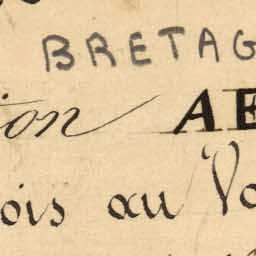 BRETAG
ion AE
ois au Vo